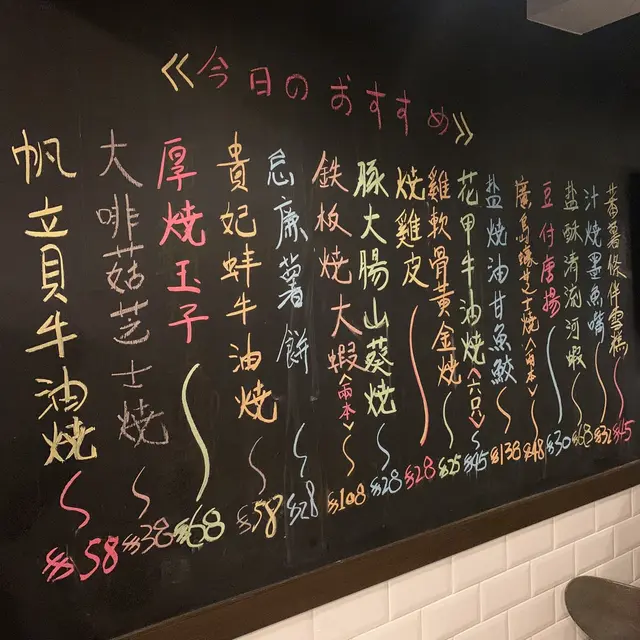 《今日のおすすめ》
帆立貝牛油燒 $58
大啡菇芝士燒 $38
厚燒玉子 $68
貴妃蚌牛油燒 $58
忌廉薯餅 $28
鉄板燒大蝦(兩本) $108
豚大腸山葵燒 $28
燒雞皮 $28
雞軟骨黃金燒 $25
花甲牛油燒(六只) $45
盐燒油甘魚鮫 $138
廣島蠔芝士燒(兩本) $48
豆付唐揚 $30
盐酥清流河蝦 $68
汁燒墨魚嘴 $32
蕃薯條伴雪糕 $45